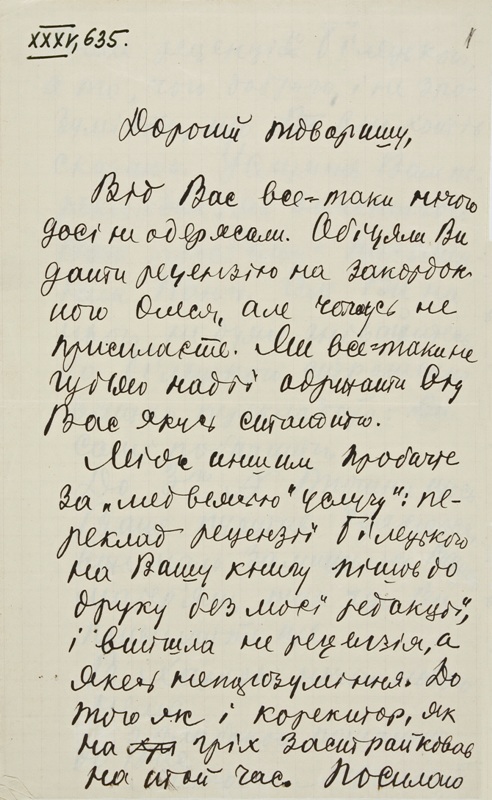 XXXV, 635.
1
Дорогий товаришу,
Від Вас все=таки нічого
досі не одержали. Обіцяли Ви
дати рецензію на закордон-
ного Олеся, але чомусь не
присилаєте. Ми все=таки не
губимо надії одержати від
Вас якусь статтю.
Між иншим пробачте
за „медвежью" услугу": пе-
реклад рецензії Білецького
на Вашу книгу пішов до
друку без моєї редакції,
і вийшла не рецензія, а
якесь непорозуміння. До
того як і коректор, як
на гріх застрайковав
на той час. Посилаю